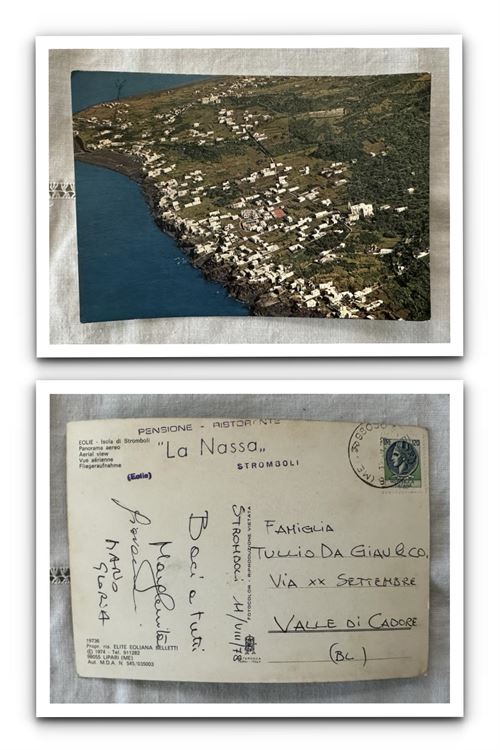 EOLIE - Isola di Stromboli
Panorama aereo
Aerial view
Vue aérienne
Fliegeraufnahme
PENSIONE - RISTORANTE
"La Nassa"
STROMBOLI
(Eolie)
STROMBOLI 11/VIII/78
Baci a tutti
Margherita
Giovanni
MARIO
GLORIA
FAMIGLIA
TULLIO DA GIAU & CO.
VIA XX SETTEMBRE
VALLE DI CADORE
(BL)
FOTOCOLOR - RIPRODUZIONE VIETATA
19736
Propr. ris. ELITE EOLIANA BELLETTI
© 1974 - Tel. 911282
98055 LIPARI (ME)
Aut. M.D.A. N. 545/035003